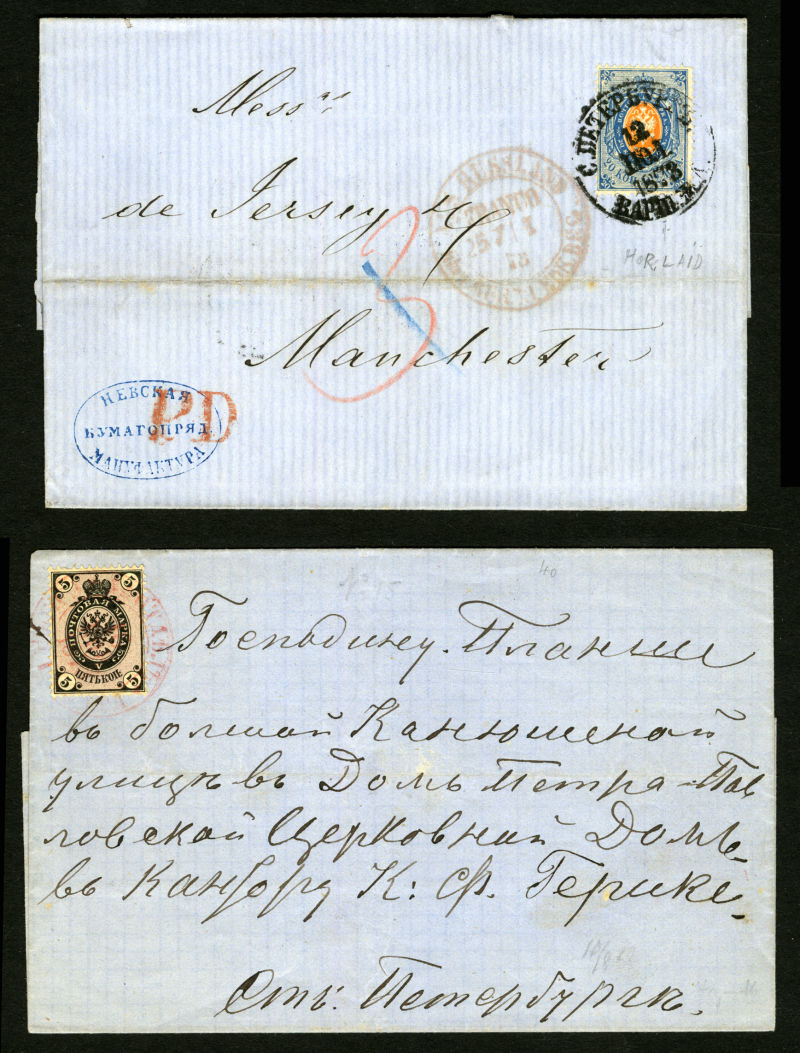 Messrs
de Jersey & Co
Manchester
С. ПЕТЕРБУРГ.
12
ІЮЛ.
1873
ВАРШ. Ж. Д.
20 КОП
RUSSLAND
FRANCO
HOR, LAID
3
P.D
НЕВСКАЯ
БУМАГОПРЯД.
МАНУФАКТУРА
40
5 5
ПОЧТОВАЯ МАРКА
5 5
V
ПЯТЬ КОП.
Господину. Планше
въ болшой Канюшеной
улицѣ въ Домъ Петра-Пав
ловской Церковнай Домъ-
въ Канфору К: Ф. Герике.
Стъ. Петербургъ.